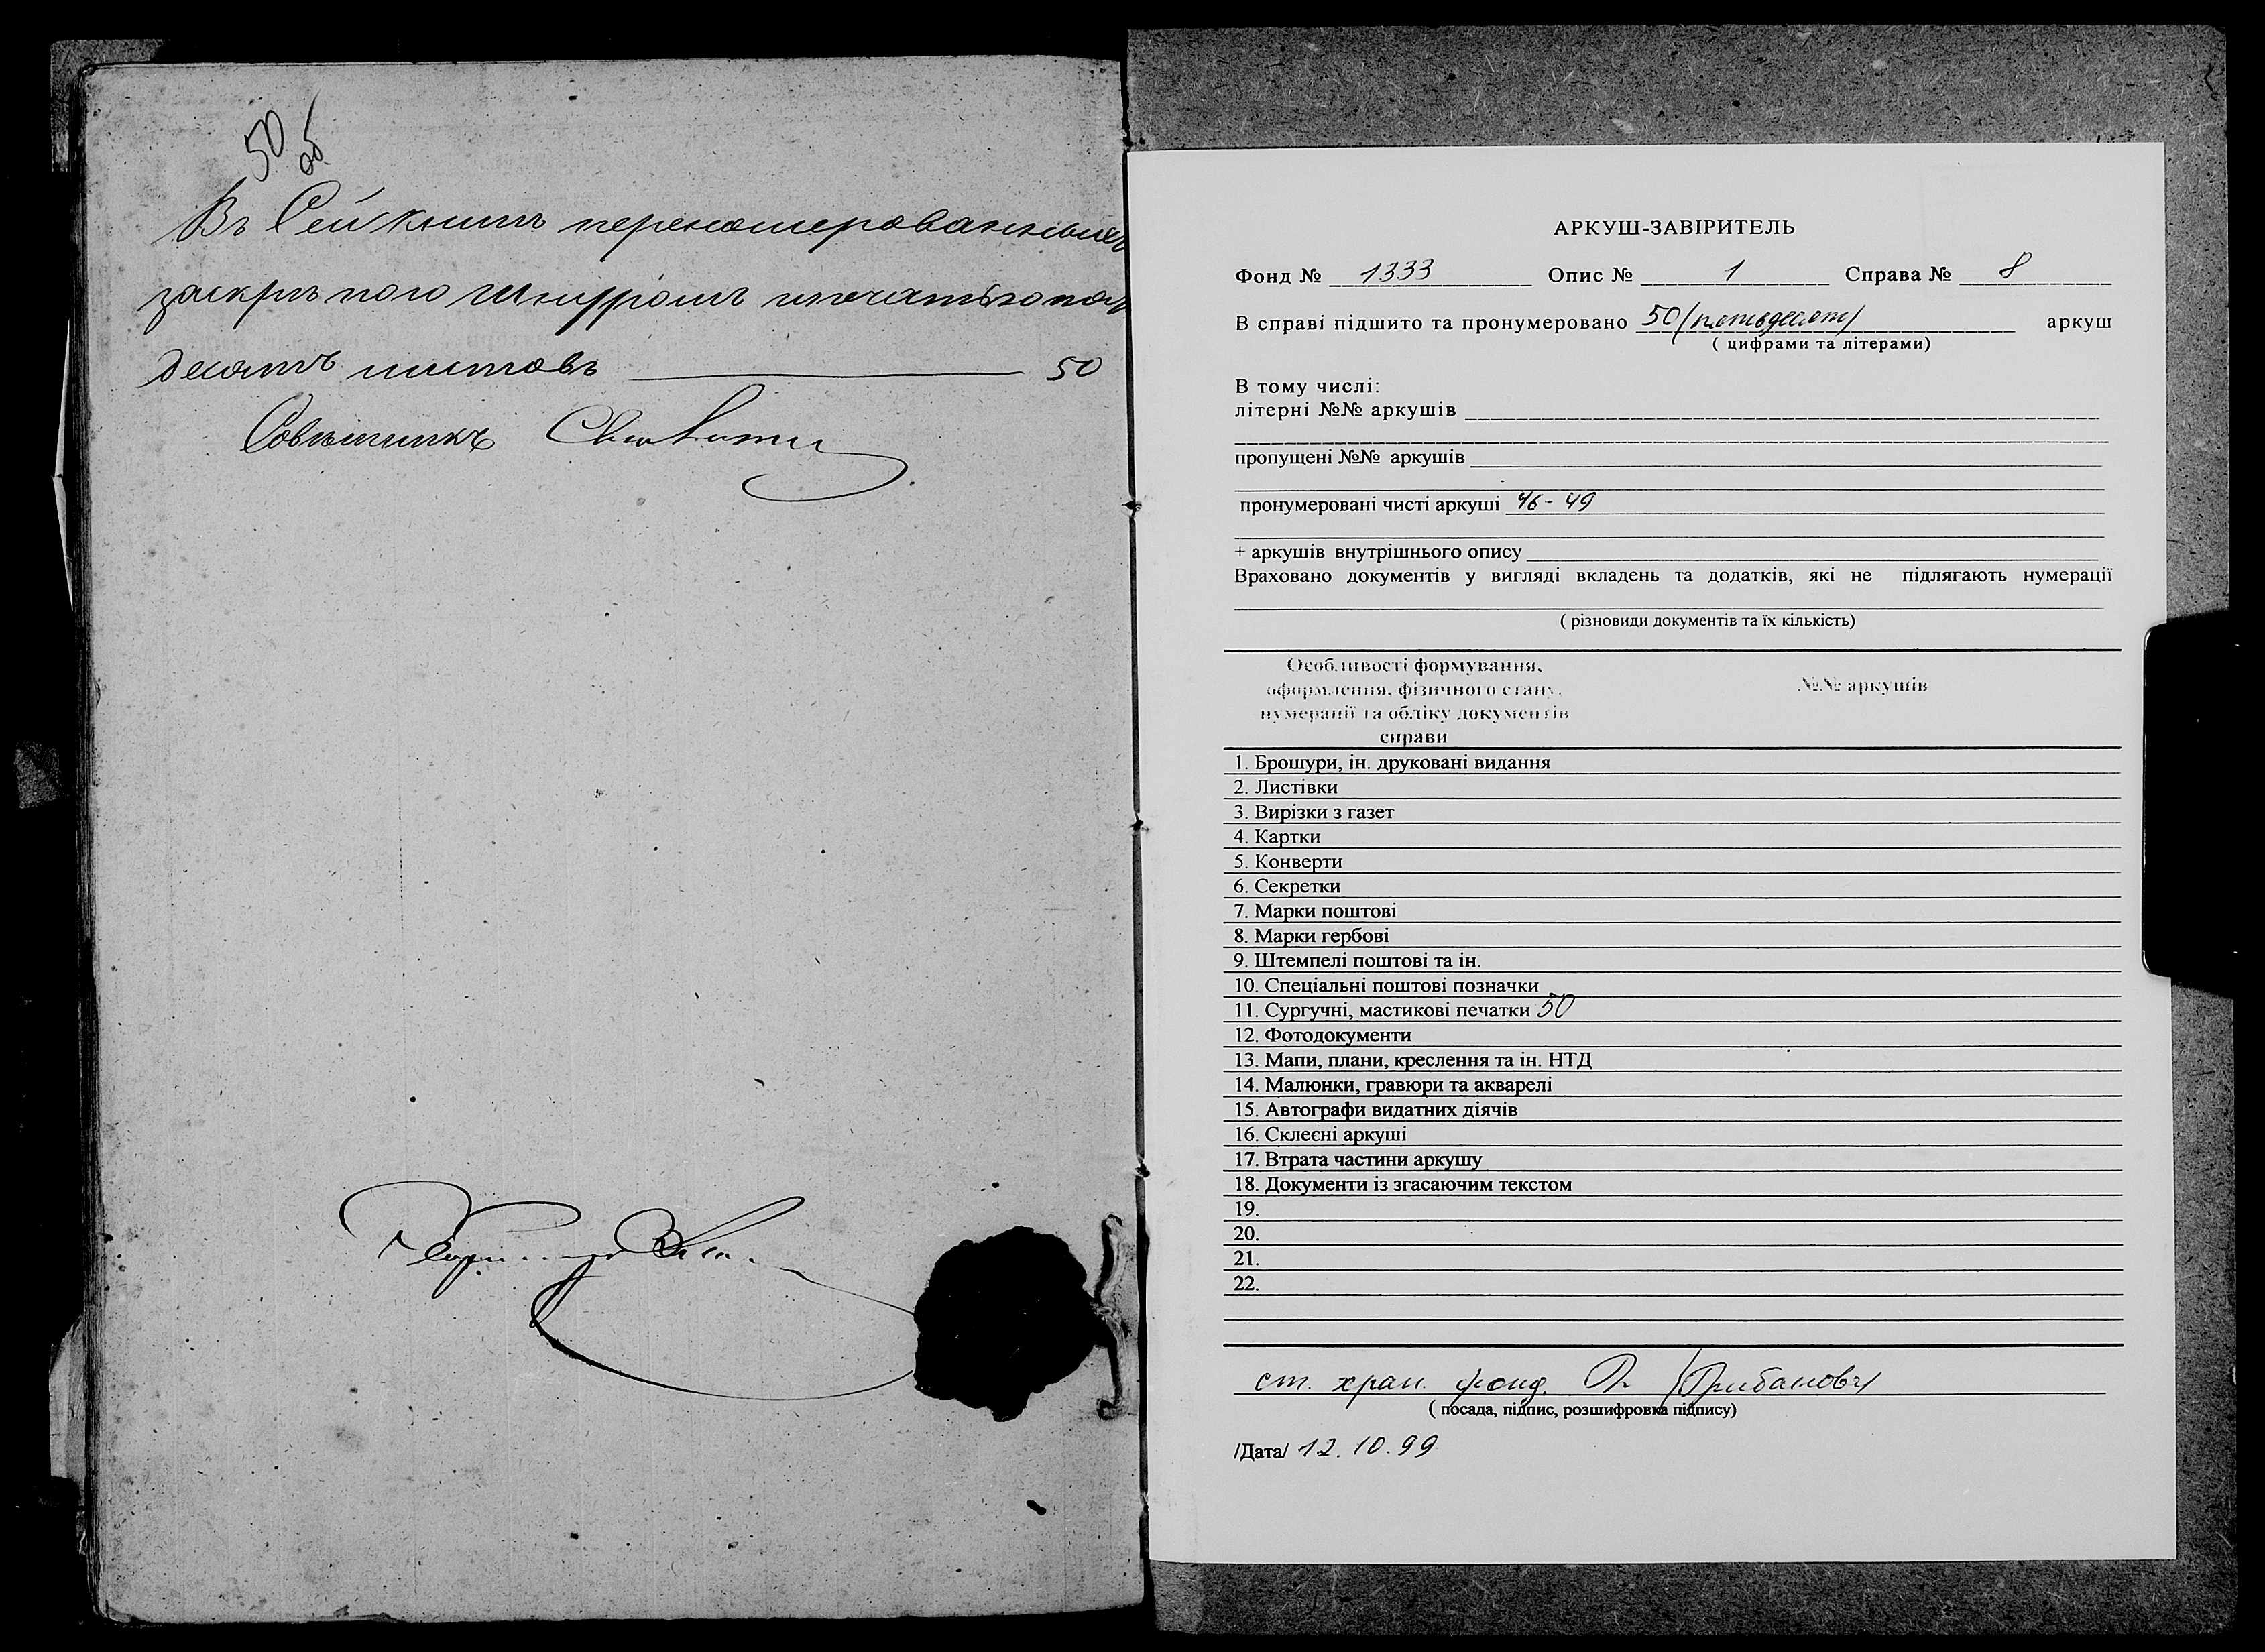 50 об
Въ Сей книгѣ перенумерованныхъ
заскрѣплено шнуромъ и печатью пять
десятъ листовъ 50
Совѣтникъ
АРКУШ-ЗАВІРИТЕЛЬ
Фонд № 1333 Опис № 1 Справа № 8
В справі підшито та пронумеровано 50 (пятьдесят) аркуш
( цифрами та літерами)
В тому числі:
літерні №№ аркушів
пропущені №№ аркушів
пронумеровані чисті аркуші 46 - 49
+ аркушів внутрішнього опису
Враховано документів у вигляді вкладень та додатків, які не підлягають нумерації
( різновиди документів та їх кількість)
Особливості формування,
оформлення, фізичного стану,
нумерації та обліку документів
справи
№№ аркушів
1. Брошури, ін. друковані видання
2. Листівки
3. Вирізки з газет
4. Картки
5. Конверти
6. Секретки
7. Марки поштові
8. Марки гербові
9. Штемпелі поштові та ін.
10. Спеціальні поштові позначки
11. Сургучні, мастикові печатки 50
12. Фотодокументи
13. Мапи, плани, креслення та ін. НТД
14. Малюнки, гравюри та акварелі
15. Автографи видатних діячів
16. Склеєні аркуші
17. Втрата частини аркушу
18. Документи із згасаючим текстом
19.
20.
21.
22.
ст. хран. фонд.
( посада, підпис, розшифровка підпису)
/Дата/ 12.10.99